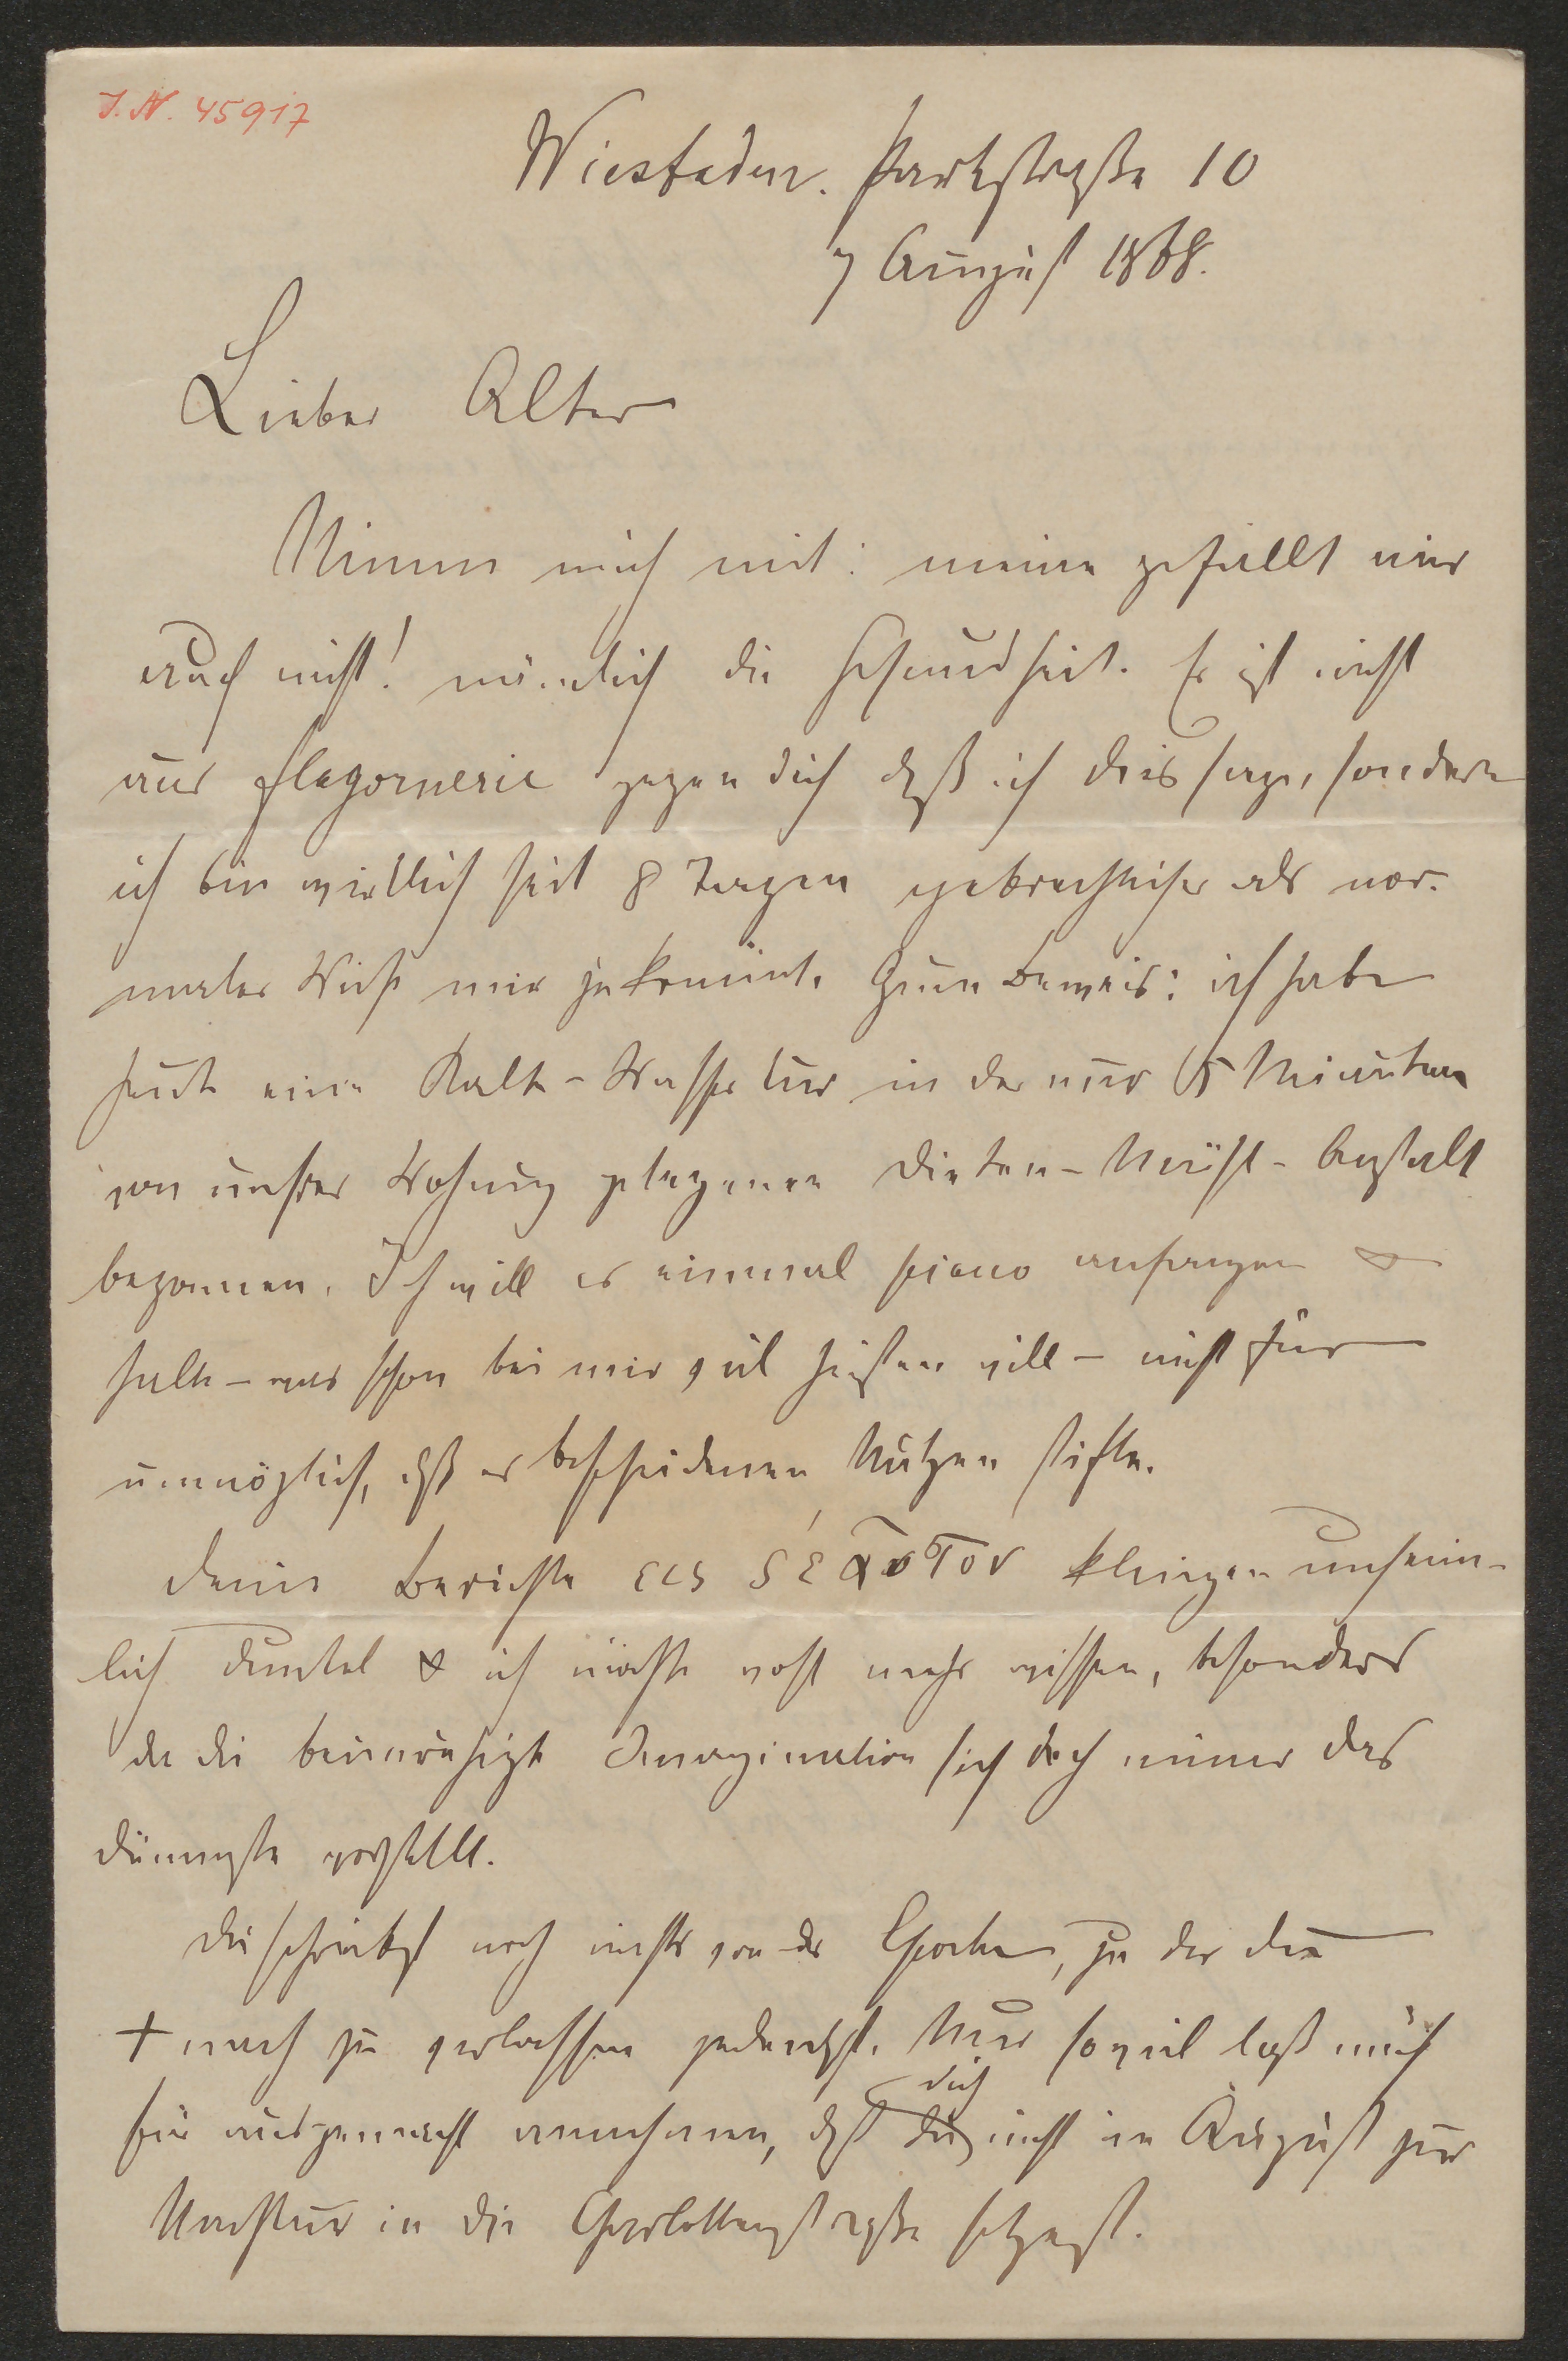 I. N. 45917
Wiesbaden. Parkstraße 10
7 August 1868.
Lieber Alter
Nimm mich mit: meine gefällt mir
auch nicht! nämlich die Gesundheit. Es ist nicht
aus flagornerie gegen dich daß ich dies sage, sondern
ich bin wirklich seit 8 Tagen gebrechlicher als nor-
maler Weise mir zukommt. Zum Beweis: ich habe
heute eine Kalt-Wasserkur in der nur 5 Minuten
von unsrer Wohnung gelegenen Dieten-Mühl-Anstalt
begonnen. Ich will es einmal piano anfangen &
halte – was schon bei mir viel heißen will – nicht für
unmöglich, daß es bescheidenen Nutzen stifte.
Deine Berichte εἰς σεαυτόν klingen unheim-
lich dunkel & ich möchte wohl mehr wissen, besonders
da die beunruhigte Imagination sich doch immer das
dümmste vorstellt.
Du schreibst noch nichts von der Epoche, zu der du
+nach zu verlassen gedenkst. Nur soviel laß mich
dich
für ausgemacht annehmen, daß du nicht im August zur
Nachkur in die Charlottenstraße setzest.